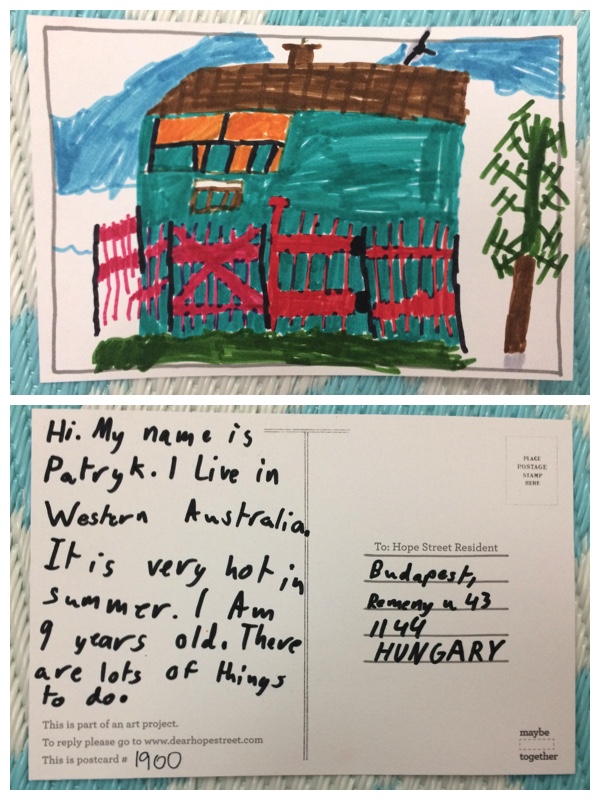 Hi. My name is
Patryk. I Live in
Western Australia.
It is very hot in
summer. I Am
9 years old. There
are lots of things
to do.
This is part of an art project.
To reply please go to www.dearhopestreet.com
This is postcard # 1900
PLACE
POSTAGE
STAMP
HERE
To: Hope Street Resident
Budapest,
Remeny u 43
1144
HUNGARY
maybe
together